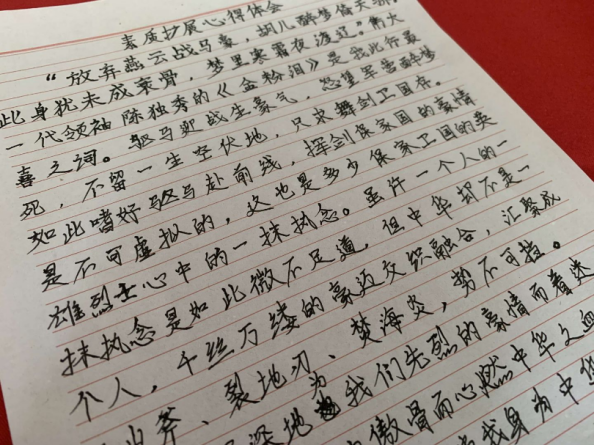 素质拓展心得体会
“放弃燕云战马豪，胡儿醉梦倚天骄。
此身犹未成衰骨，梦里寒霜夜渡辽。”伟大
一代领袖陈独秀的《金粉泪》是我此行最
喜之词。驱马 战生豪气，怒望军营醉梦
死，不留一生空伏地，只求舞剑卫国存。
如此嗜好驱马赴前线，挥剑保家国的豪情
是不可虚拟的，这也是多少保家卫国的英
雄烈士心中的一抹执念。虽许一个人的一
抹执念是如此微不足道，但中华却不是一
个人，千丝万缕的豪迈交织融合，汇聚成
斧、裂地刃、焚海炎，势不可挡。
深地为我们先烈的豪情而着迷
傲骨而心燃中华之血
我身为中华